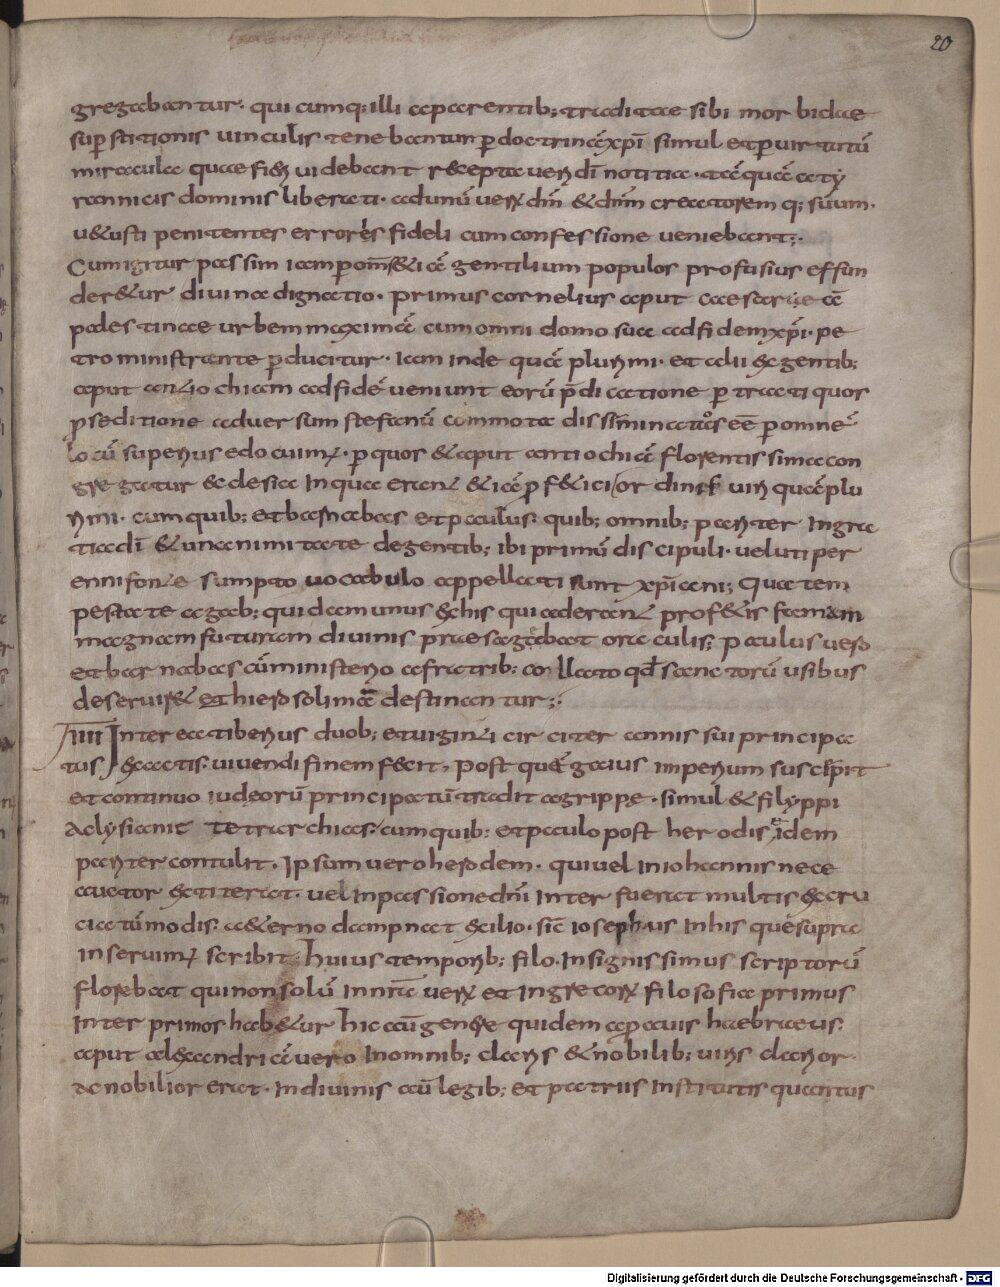 20
gregabantur. qui cumq; illi a parentib; traditae sibi morbidae
sup̄stitionis uinculis tenebantur p̄ doctrinā xp̄i simul et p̄ uirtutū
miracula quae fieri uidebant recepta ueri dī notitia. tāquā a ty
rannicis dominis liberati. ad unū ueꝝ dm̄ & dn̄m creatorem q; suum.
uetusti penitentes erroris fideli cum confessione ueniebant;.
Cum igitur passim iam p̄ om̄s etiā gentilium populos profusius effun
deretur diuina dignatio. primus cornelius aput caesariae ā
palestinae urbem maximā cum omni domo sua ad fidem xp̄i. pe
tro ministrante p̄ducitur. Iam inde quā plurimi. et alii ex gentib;
aput antiochiam ad fidē ueniunt eorū p̄dicatione p tracti quos
p seditione aduersum stefanū commota dissēminatos eē p omnē
locū superius edocuimꝰ. p quos & aput antiochiā florentissima con
gregatur ecclesia In qua erant etiā p̄fetici ordinis uiri quā plu
rimi. cum quib; et barnabas et paulus. quib; omnib; pariter In gra
tia dī & unanimitate degentib; ibi primū discipuli. ueluti per
enni fonte sumpto uocabulo appellati sunt xp̄iani; Qua tem
pestate agab; quidam unus ex his qui aderant profetis famam
magnam futuram diuinis praesagabat oraculis; paulus uero
et barnabas cū ministerio a fratrib; conllato qd̄ sanctorū usibus
deseruiret et hierosolimā destinantur;.
IIII Interea tiberius duob; et uiginti circiter annis sui principa
tus exactis. uiuendi finem fecit, post quē gaius imperium suscepit
et continuo iudeorū principatū tradit agrippę. simul & filyppi
ac lysianie tetrarchias. cum quib; et paulo post herodis eādem
pariter contulit. Ipsum uero herodem. qui uel In iohannis nece
auctor extiterat. uel In passione dn̄i Interfuerat multis excru
ciatū modis. aeterno dampnat exilio. sīc iosephus In his quę supra
inseruimꝰ scribit. huius temporib; filo. Insignissimus scriptorū
florebat qui non solū In nr̄is ueꝝ et In grecoꝝ filosofia primus
Inter primos habetur hic aū genere quidem a p̄auis haebraeus
aput alexandriā uero In omnib; claris & nobilib; uiris clarior.
ac nobilior erat. In diuinis aū legib; et patriis Institutis quantus
Digitalisierung gefördert durch die Deutsche Forschungsgemeinschaft - DFG